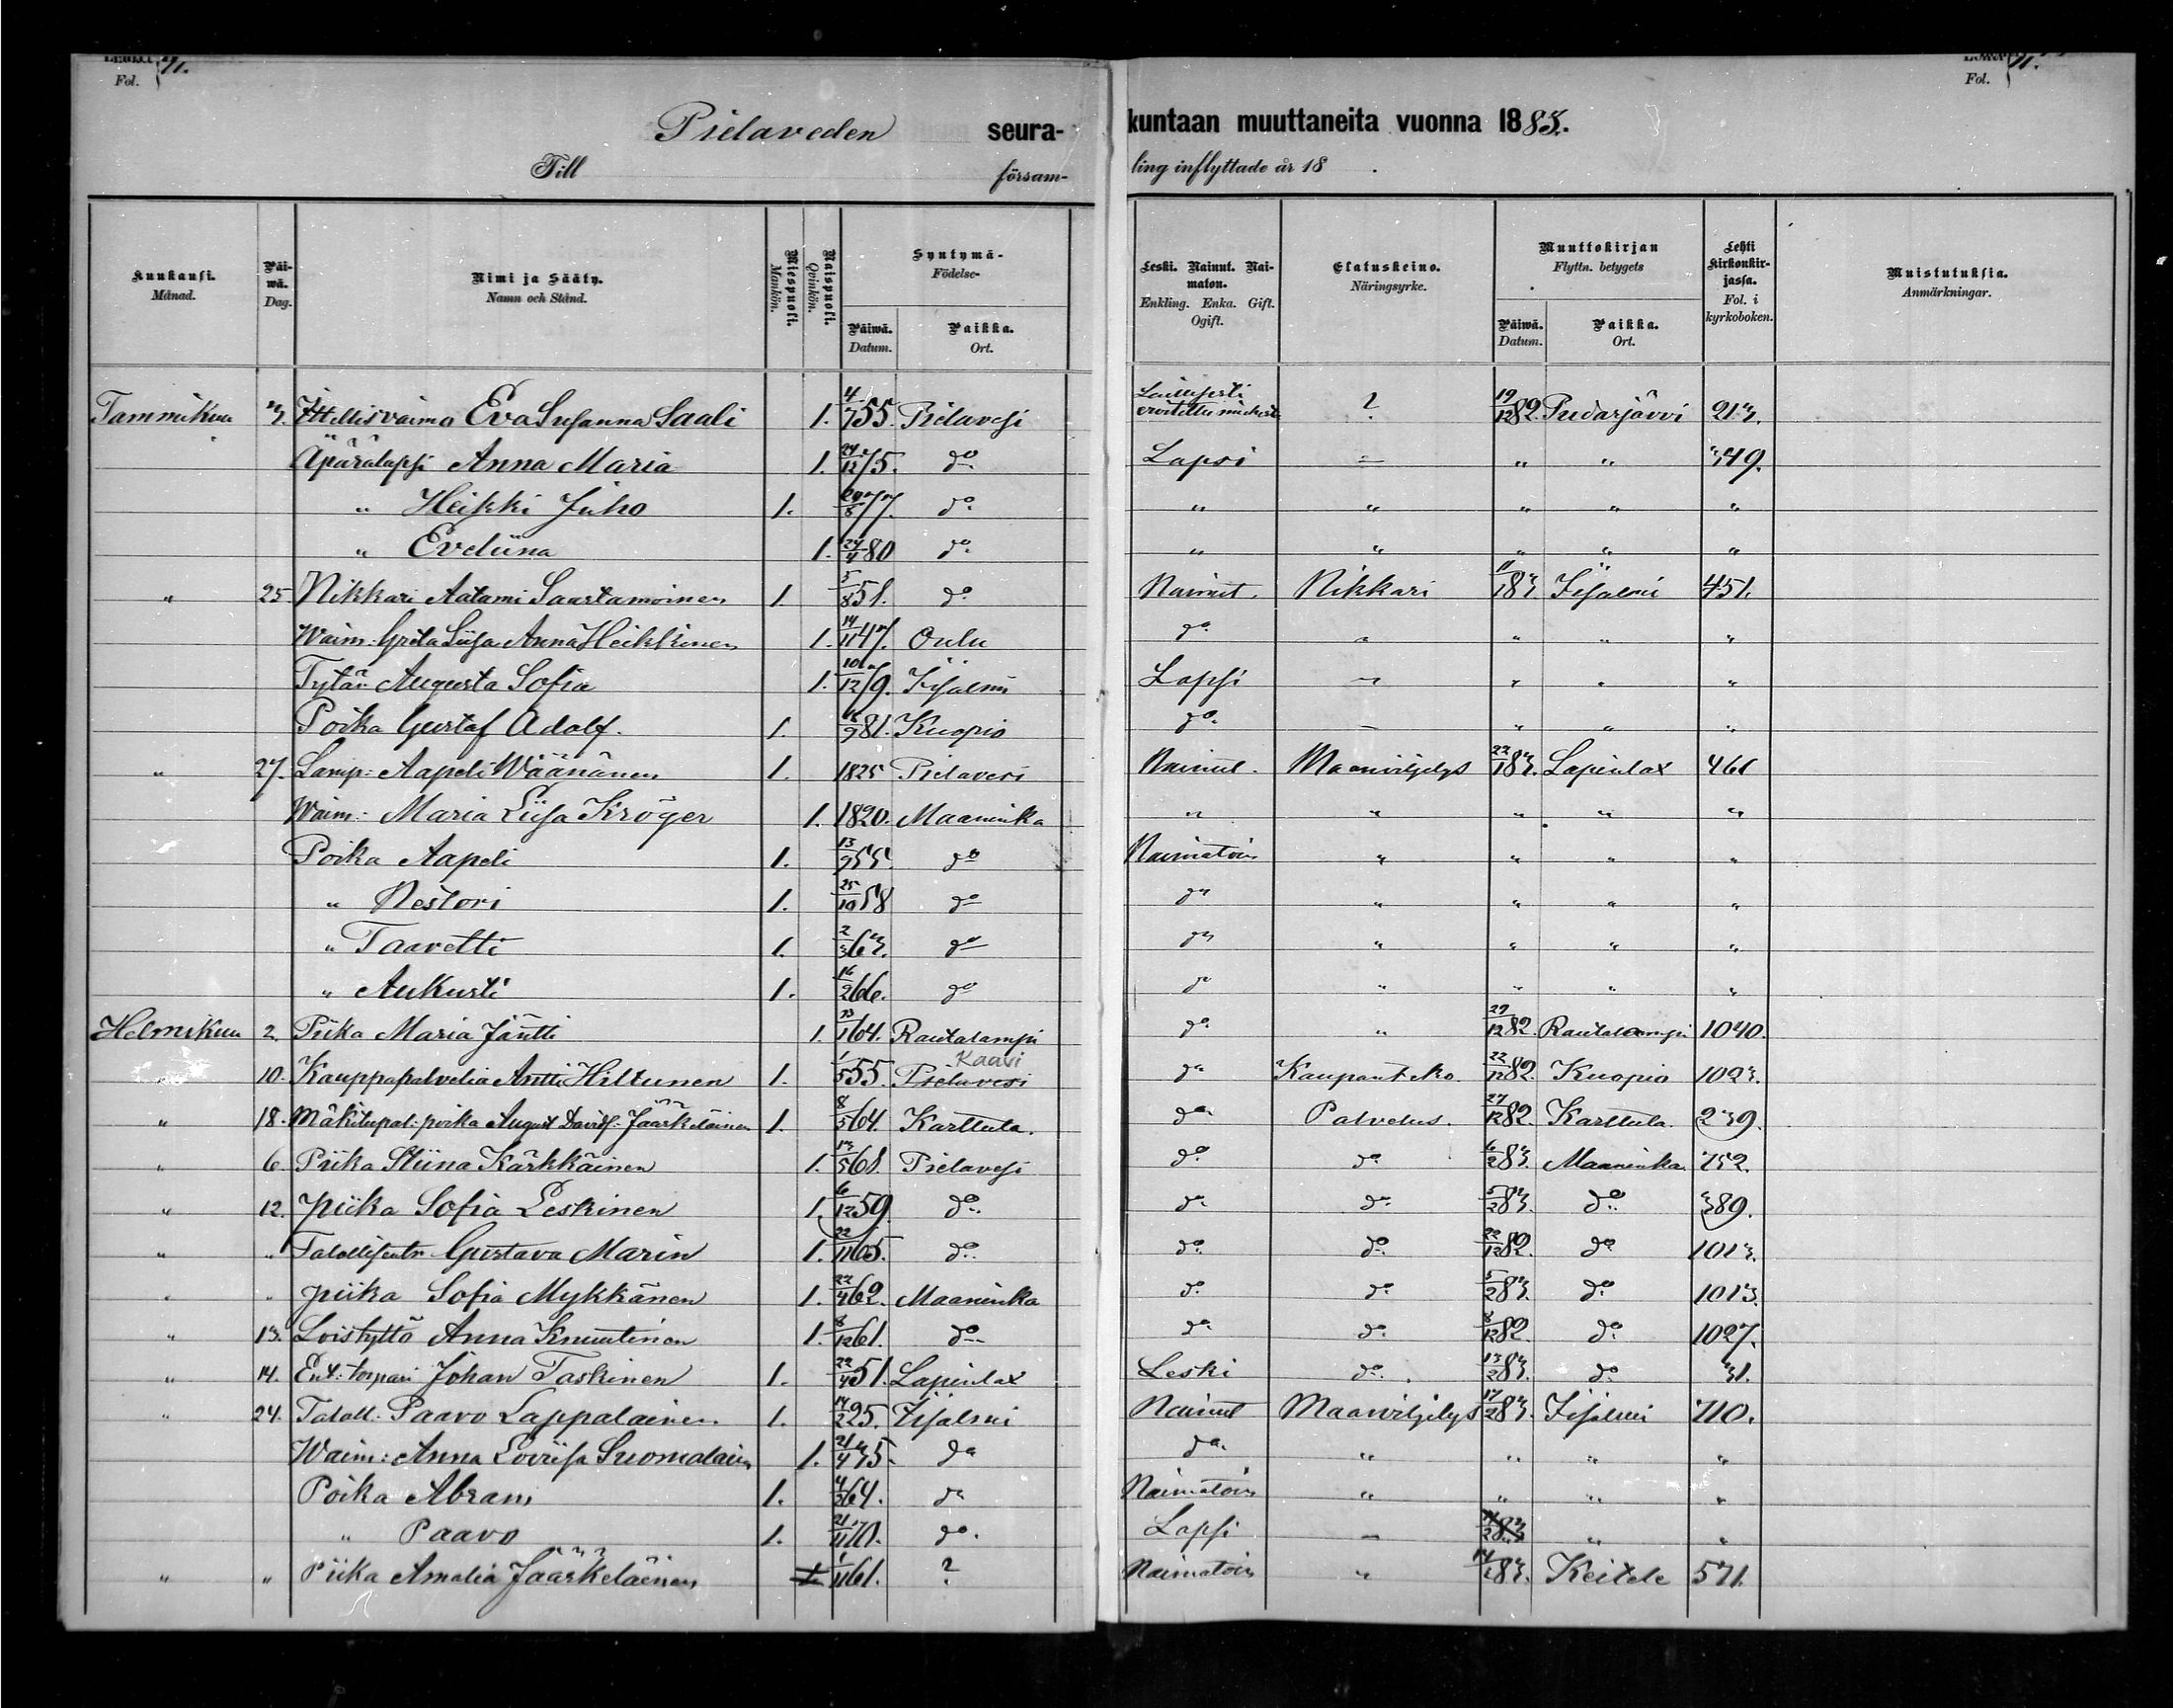 Fol. 71.
Fol. 71.
Pielaveden seura- kuntaan muuttaneita vuonna 1883.
Till försam- ling inflyttade år 18 .
Kuukausi. Månad. | Päiwä. Dag. | Nimi ja Sääty. Namn och Stånd. | Miespuoli. Mankön. | Naispuoli. Qvinkön. | Syntymä- Födelse- Päiwä. Datum. | Paikka. Ort. | Leski. Nainut. Naimaton. Enkling. Enka. Gift. Ogift. | Elatuskeino. Näringsyrke. | Muuttokirjan Flyttn. betygets Päiwä. Datum. | Paikka. Ort. | Lehti Kirkonkirjassa. Fol. i kyrkoboken. | Muistutuksia. Anmärkningar.
Tammikuu 3. Itellisvaimo Eva Susanna Saali 1. 4/7 55. Pielavesi Laillisesti ? 19/12 82. Pudasjärvi 213.
Äpärälapsi Anna Maria 1. 24/12 75. do Lapsi – " " 349.
" Heikki Juho 1. 20/8 77. do " " " " "
" Eveliina 1. 24/4 80 do " " " " "
" 25. Nikkari Aatami Saastamoinen 1. 5/8 51. do Nainut. Nikkari 11/1 83 Iisalmi 451.
Waim. Greta Liisa Anna Heikkinen 1. 14/11 47. Oulu do " " " "
Tytär Augusta Sofia 1. 10/12 79. Iisalmi Lapsi – " " "
Poika Gustaf Adolf. 1. /9 81. Kuopio do – " " "
" 27. Lamp: Aapeli Wäänänen 1. 1825 Pielavesi Nainut. Maanviljelys 22/1 83. Lapinlax 461
Waim: Maria Liisa Kröger 1. 1820. Maaninka " " " " "
Poika Aapeli 1. 13/9 55. do Naimatoin " " " "
" Nestori 1. 25/10 58 do do " " " "
" Taavetti 1. 2/3 63. do do " " " "
" Aukusti 1. 16/2 66. do do " " " "
Helmikuu 2. Piika Maria Jäntti 1. 13/1 64. Rautalampi do " 27/12 82. Rautalampi 1040.
Kaavi
" 10. Kauppapalvelia Antti Hiltunen 1. 1/5 55. Pielavesi do Kaupanteko. 22/12 82. Kuopio 1023.
" 18. Mäkitupal: poika August Davidf: Jääskeläinen 1. 8/5 64. Karttula. do Palvelus. 27/12 82. Karttula. 239.
" 6. Piika Stiina Kärkkäinen 1. 13/5 68. Pielavesi do do 6/2 83. Maaninka. 752.
" 12. Piika Sofia Leskinen 1. 6/12 59. do do do 5/2 83. do 389.
" " Talollisentr Gustava Marin 1. 22/11 65. do do do 22/12 82. do 1013.
" " Piika Sofia Mykkänen 1. 22/4 62. Maaninka do do 5/2 83. do 1013.
" 13. Loistyttö Anna Knuutinen 1. 8/12 61. do do do 8/12 82. do 1027.
" 14. Ent: torpari Johan Taskinen 1. 22/4 51. Lapinlax Leski do 13/2 83. do 31.
" 24. Taloll. Paavo Lappalainen 1. 14/2 25. Iisalmi Nainut Maanviljelys 17/2 83. Iisalmi 710.
Waim: Anna Loviisa Suomalain 1. 21/4 35. do do " " " "
Poika Abram 1. 4/2 64. do Naimatoin " " " "
" Paavo 1. 21/11 70. do. Lapsi – " "
" " Piika Amalia Jääskeläinen 1. 1/11 61. ? Naimatoin " 14/1 83. Keitele 571.